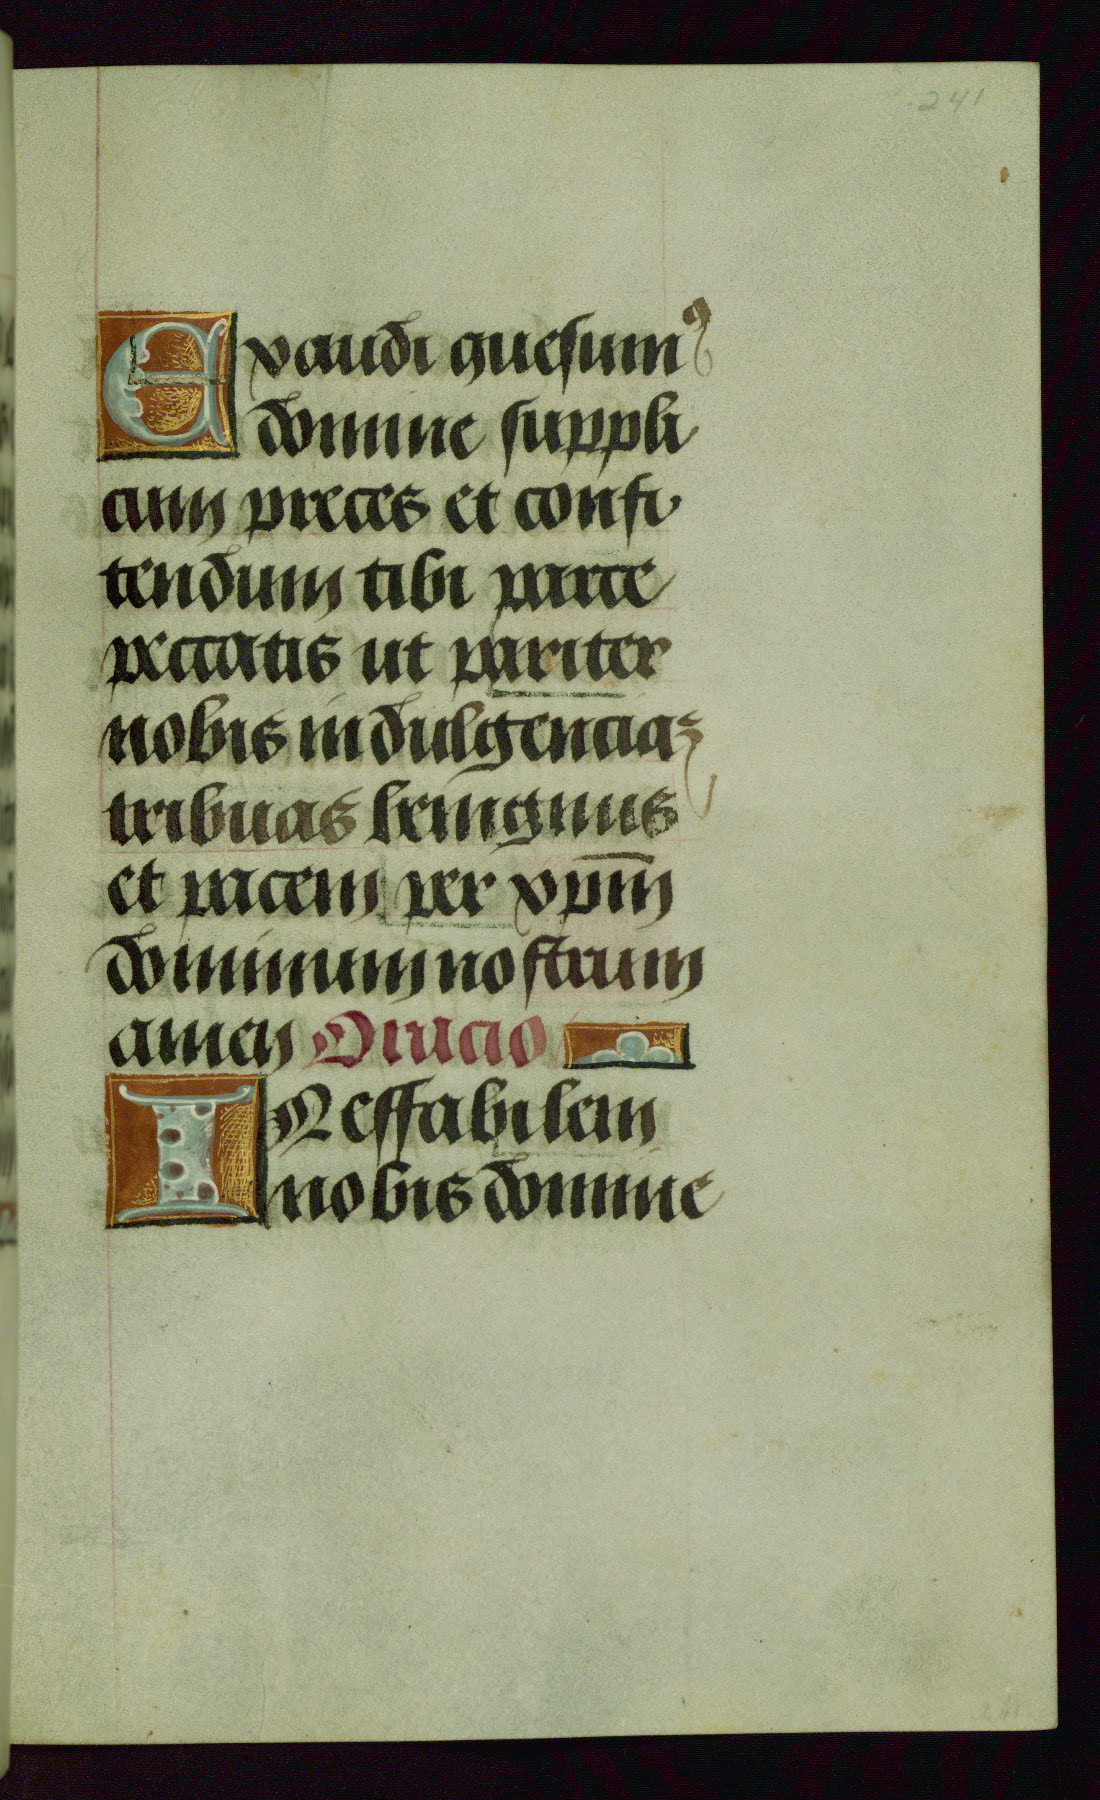 241
Exaudi quesumꝰ
domine suppli
cum preces et confi
tendum tibi parce
peccatis ut pariter
nobis indulgenciaꝫ
tribuas benignus
et pacem per xp̅m
dominum nostrum
amen Oracio
INeffabilem
nobis domine